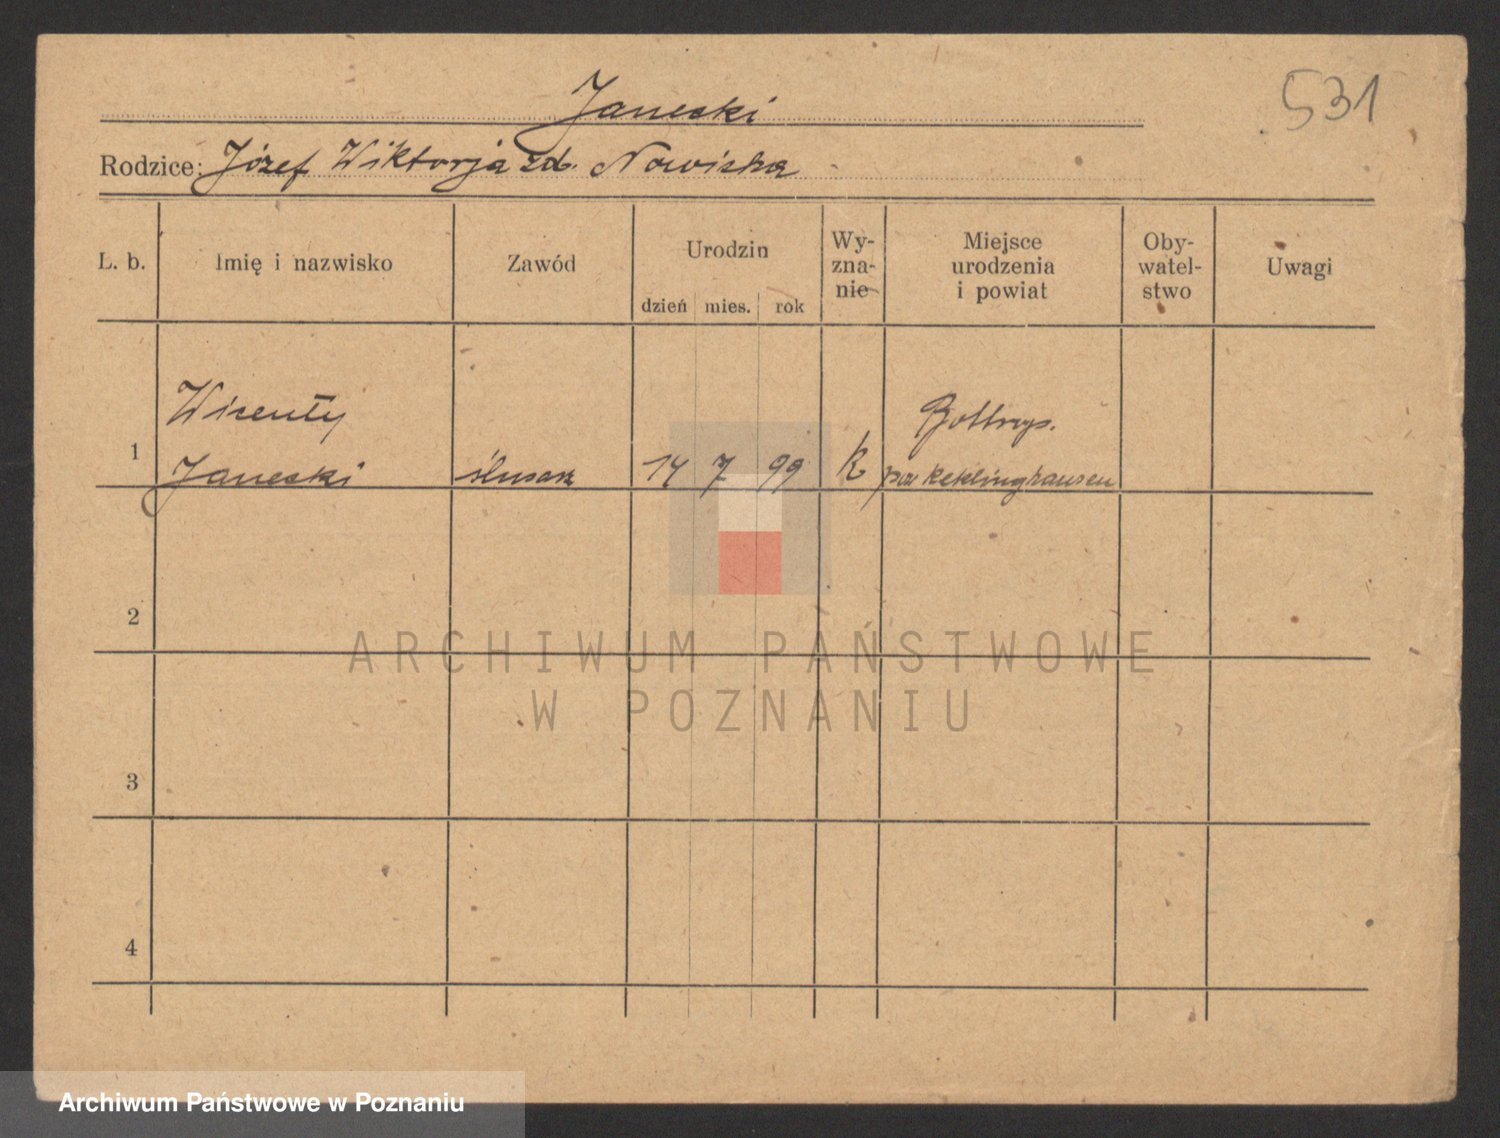 531
Janecki
Rodzice: Józef Wiktorja zd. Nowicka
L. b. Imię i nazwisko Zawód Urodzin dzień mies. rok Wy-zna-nie Miejsce urodzenia i powiat Oby-watel-stwo Uwagi
Wicenty Bottrop.
1 Janecki ślusarz 14 7 99 k pow Reklinghausen
2
ARCHIWUM PAŃSTWOWE
W POZNANIU
3
4
Archiwum Państwowe w Poznaniu